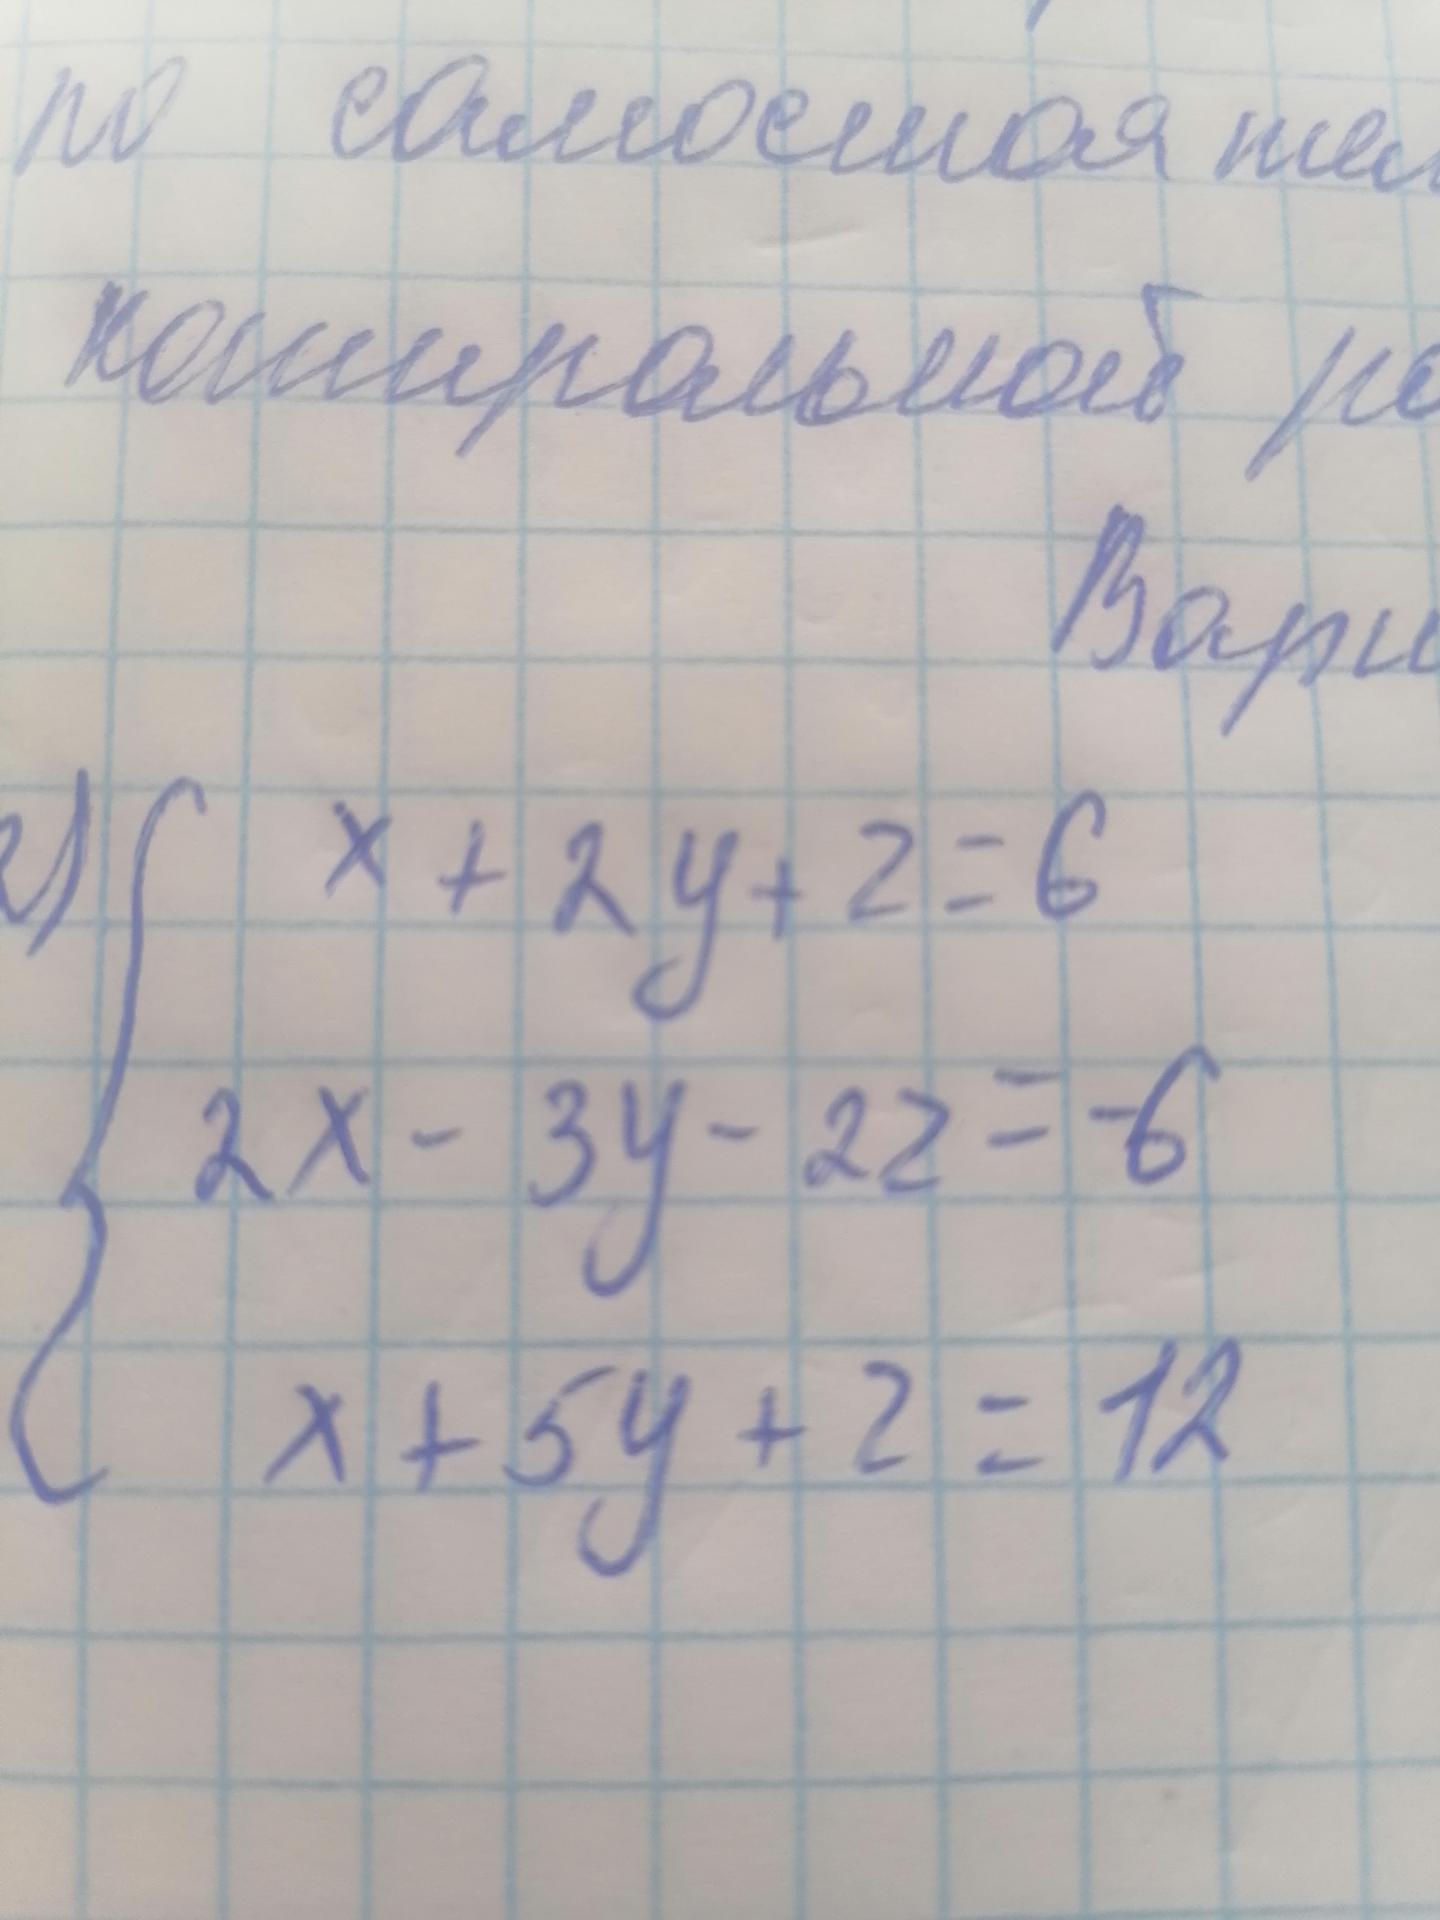 по самостоятел
контрольной ра
Вари
2) x + 2y + z = 6
2x - 3y - 2z = -6
x + 5y + z = 12